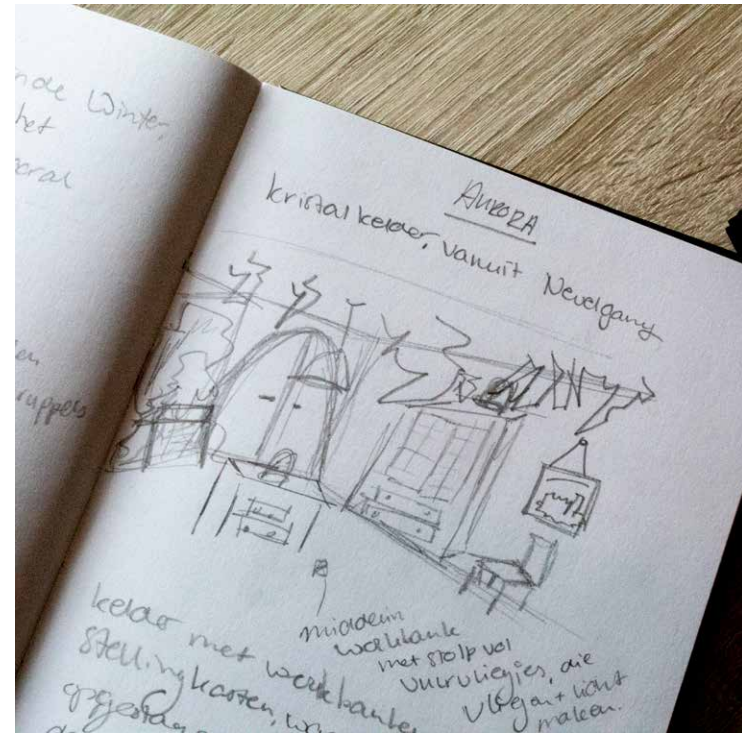 nde Winter,
het
oral
en
ruppers
AURORA
kristalkelder, vanuit Nevelgang
middenin
werkbank
met stolp vol
vuurvliegjes, die
vliegen + licht
maken.
kelder met werkbanken
stellingkasten,